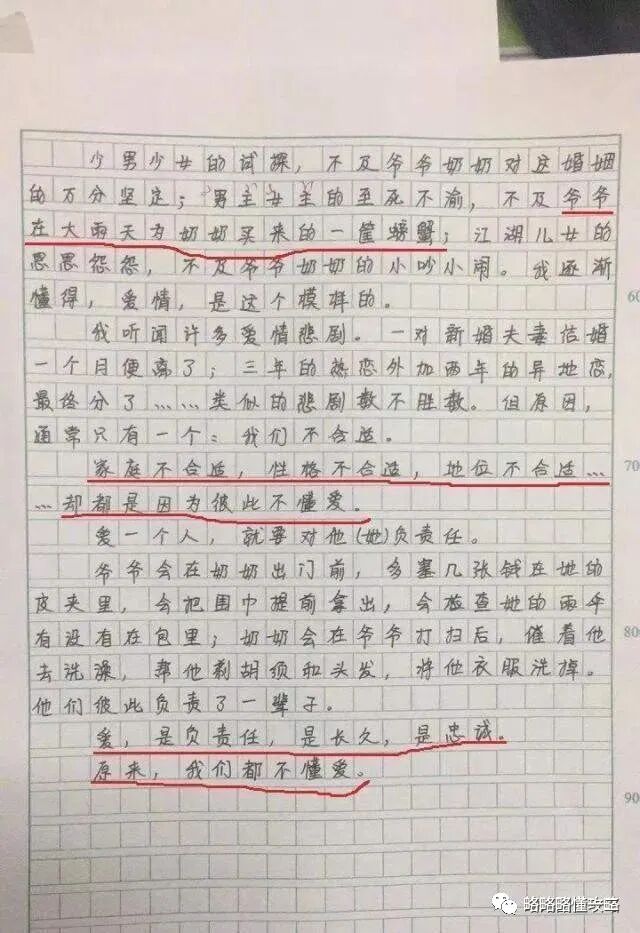 少男少女的试探，不及爷爷奶奶对这婚姻
的万分坚定；男主女主的至死不渝，不及爷爷
在大雨天为奶奶买来的一筐螃蟹；江湖儿女的
恩恩怨怨，不及爷爷奶奶的小吵小闹。我逐渐
懂得，爱情，是这个模样的。
60
我听闻许多爱情悲剧。一对新婚夫妻结婚
一个月便离了；三年的热恋外加两年的异地恋，
最终分了……类似的悲剧数不胜数。但原因，
通常只有一个：我们不合适。
家庭不合适，性格不合适，地位不合适…
70
…却都是因为彼此不懂爱。
爱一个人，就要对他(她)负责任。
爷爷会在奶奶出门前，多塞几张钱在她的
皮夹里，会把围巾提前拿出，会检查她的雨伞
有没有在包里；奶奶会在爷爷打扫后，催着他
80
去洗澡，帮他剃胡须和头发，将他衣服洗掉。
他们彼此负责了一辈子。
爱，是负责任，是长久，是忠诚。
原来，我们都不懂爱。
90
略略略懂攻略